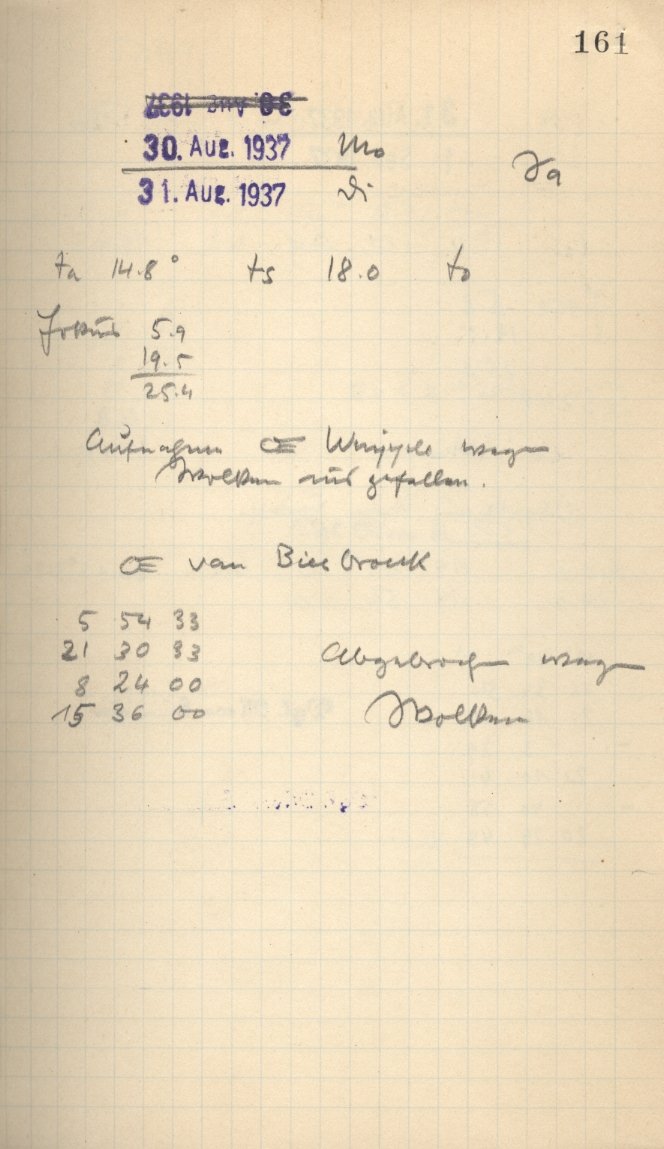 161
30. Aug. 1937 Mo
31. Aug. 1937 Di
ta 14.8° ts 18.0 to
Fokus 5.9
19.5
25.4
Aufnahmen Whipple wegen
Wolken ausgefallen.
van Biesbroeck
5 54 33
21 30 33
8 24 00
15 36 00
Abgebrochen wegen
Wolken